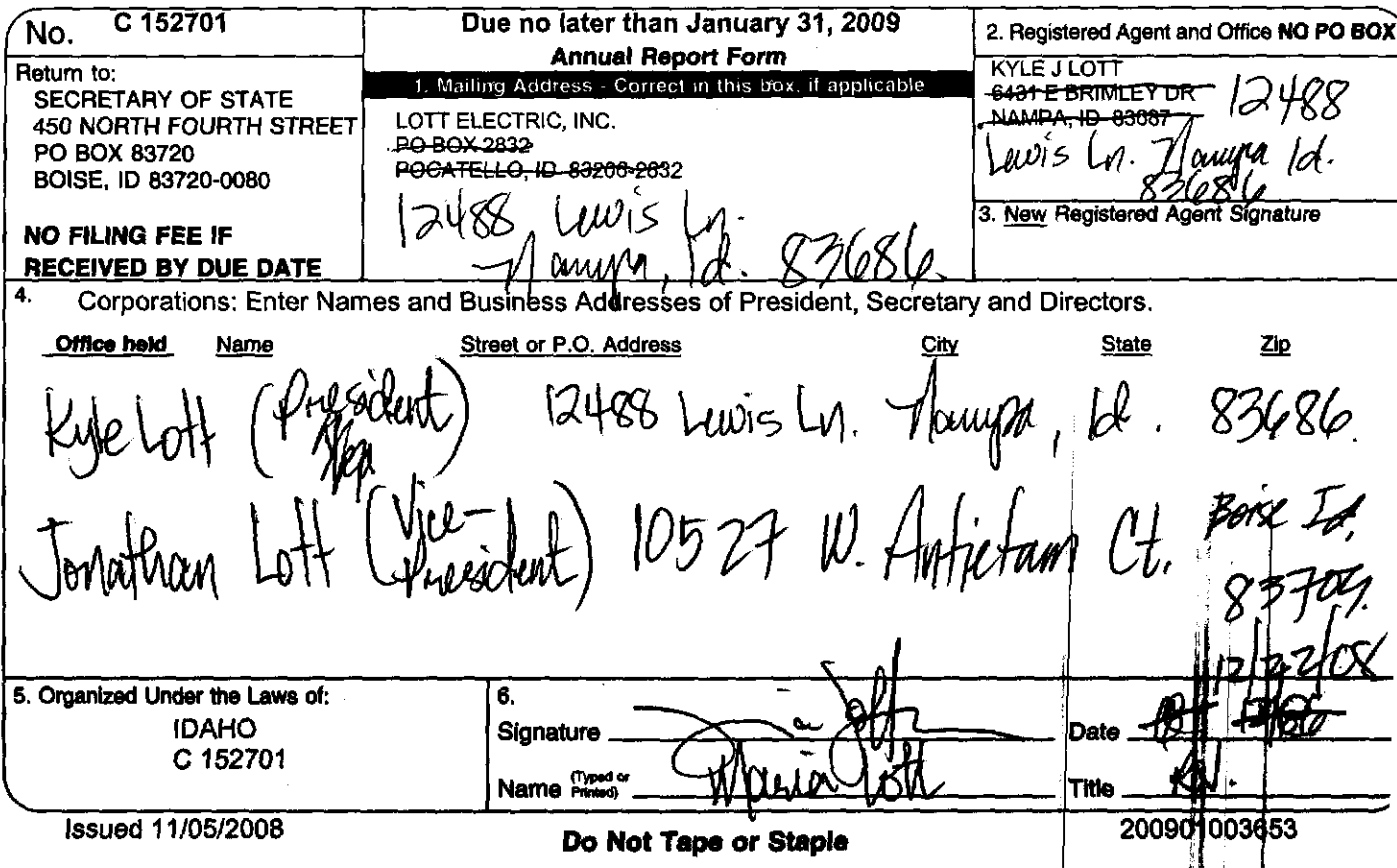 No. C 152701
Return to:
SECRETARY OF STATE
450 NORTH FOURTH STREET
PO BOX 83720
BOISE, ID 83720-0080
NO FILING FEE IF
RECEIVED BY DUE DATE
Due no later than January 31, 2009
Annual Report Form
1. Mailing Address - Correct in this box, if applicable
LOTT ELECTRIC, INC.
PO BOX 2832
POCATELLO, ID 83206-2832
12488 Lewis Ln.
Nampa, Id. 83686.
2. Registered Agent and Office NO PO BOX
KYLE J LOTT
6431 E BRIMLEY DR 12488
NAMPA, ID 83687
Lewis Ln. Nampa Id.
83686
3. New Registered Agent Signature
4. Corporations: Enter Names and Business Addresses of President, Secretary and Directors.
Office held Name Street or P.O. Address City State Zip
Kyle Lott (President) 12488 Lewis Ln. Nampa, Id. 83686.
Jonathan Lott (Vice-President) 10527 W. Antietam Ct. Boise Id,
83709.
5. Organized Under the Laws of:
IDAHO
C 152701
6.
Signature Lott
Name (Typed or Printed) Maria Lott
12/22/08
Date
Title
Issued 11/05/2008
Do Not Tape or Staple
200901003653